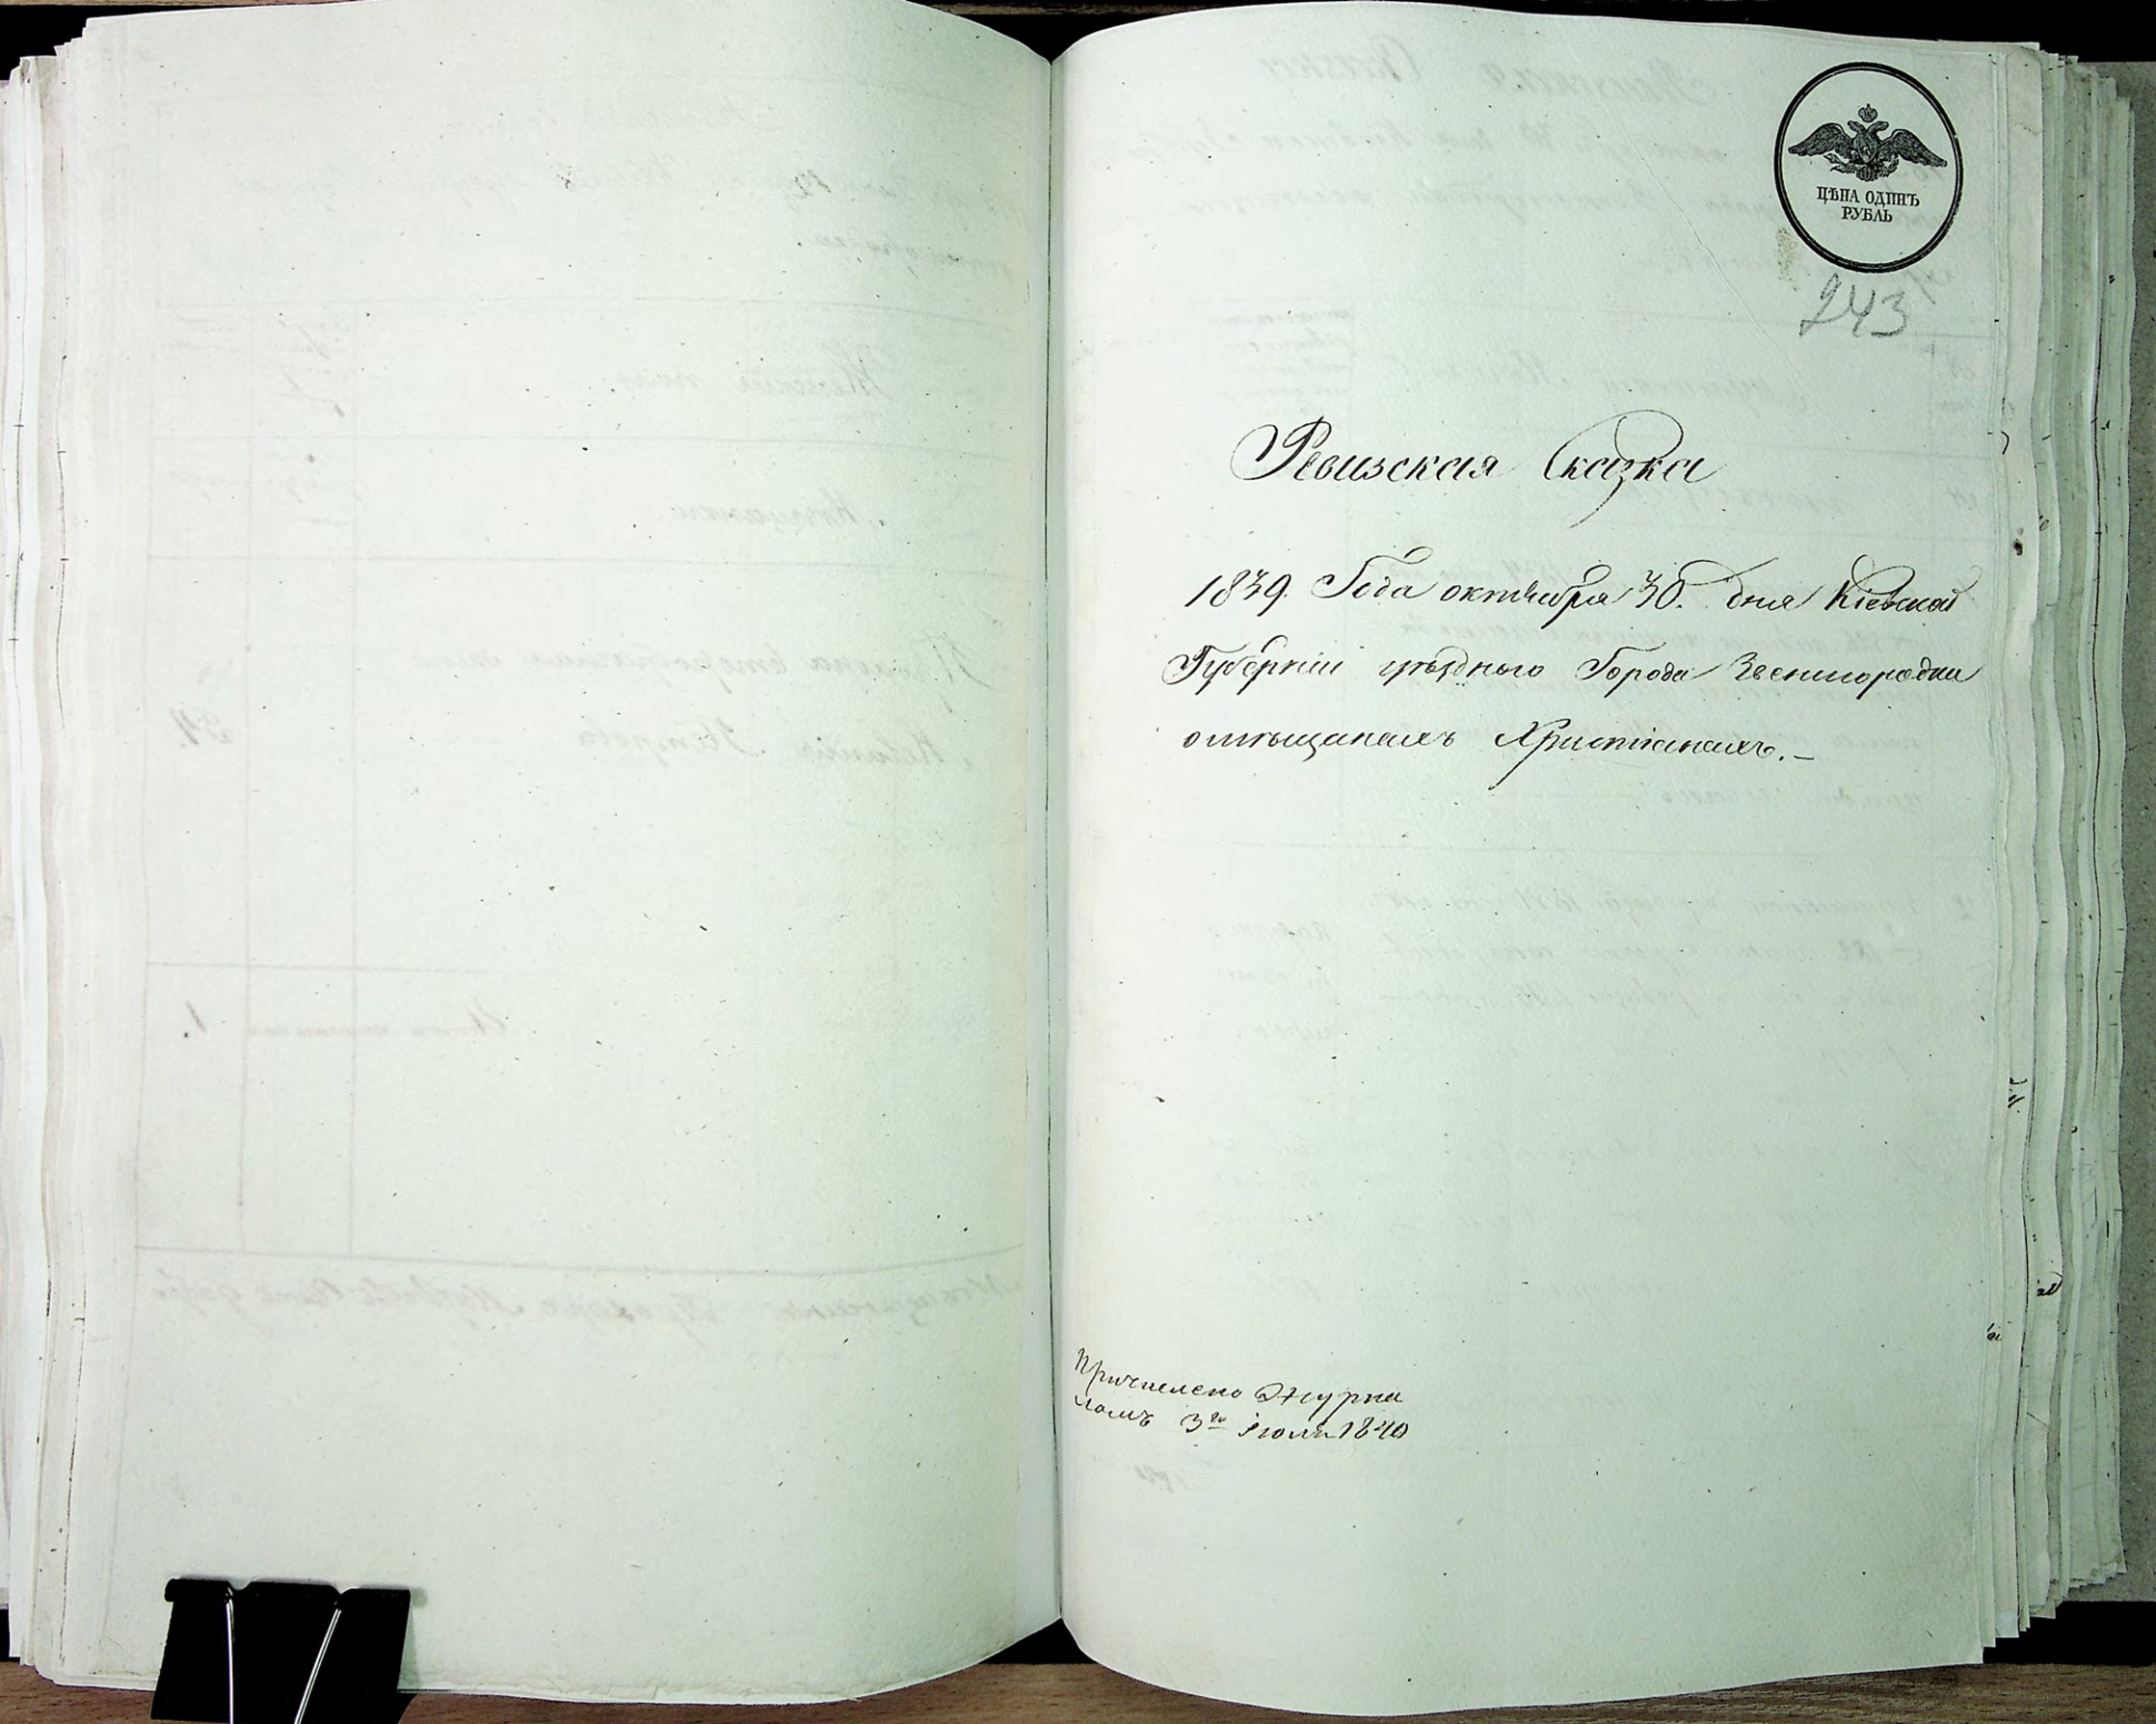 ЦѢНА ОДИНЪ
РУБЛЬ
243
Ревизская Сказка
1839. Года октября 30. дня Кіевской
Губерніи уѣзднаго Города Звенигородки
омѣщанахъ Христіанахъ.-
Причислено Журна
ломъ 3го Іюля 1840